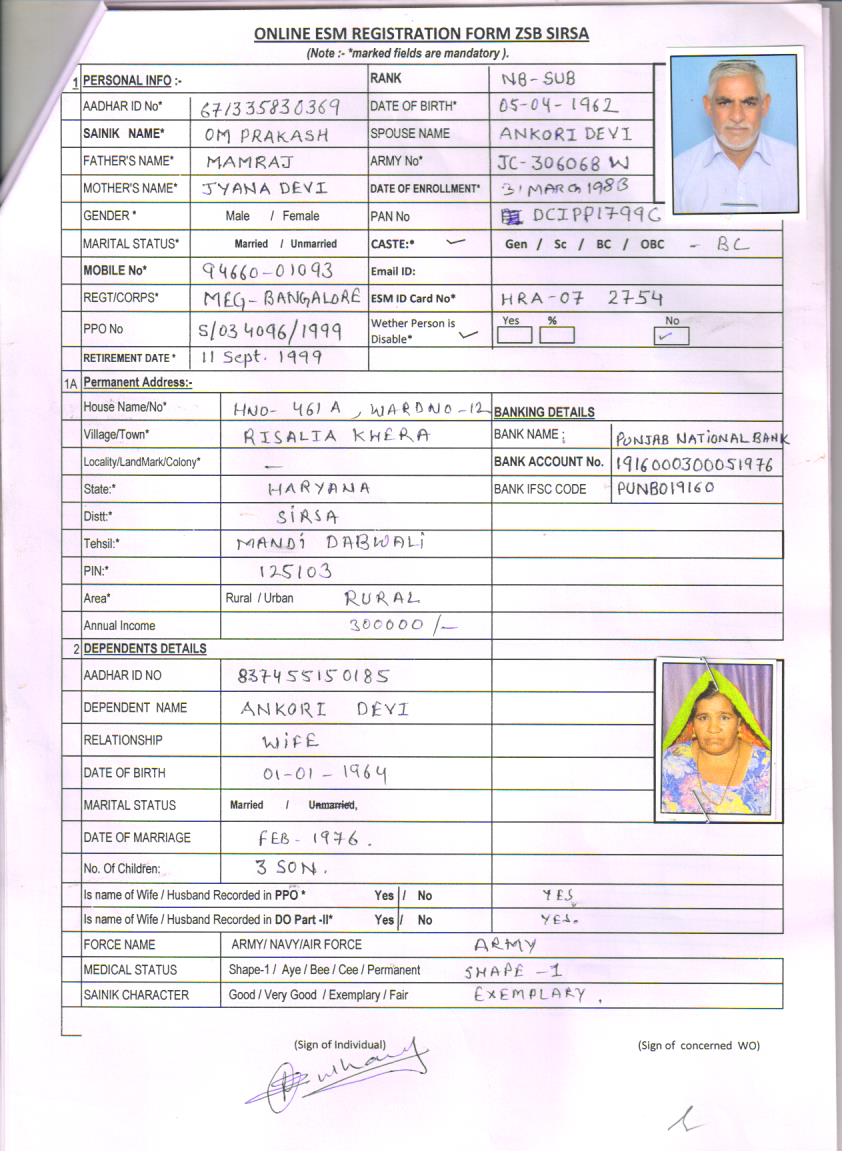 ONLINE ESM REGISTRATION FORM ZSB SIRSA
(Note :- *marked fields are mandatory ).
1 PERSONAL INFO :- RANK NB-SUB
AADHAR ID No* 671335830369 DATE OF BIRTH* 05-04-1962
SAINIK NAME* OM PRAKASH SPOUSE NAME ANKORI DEVI
FATHER'S NAME* MAMRAJ ARMY No* JC-306068 W
MOTHER'S NAME* JYANA DEVI DATE OF ENROLLMENT* 31 MARCH 1983
GENDER * Male / Female PAN No DCIPP1799G
MARITAL STATUS* Married / Unmarried CASTE:* ✓ Gen / Sc / BC / OBC - BC
MOBILE No* 94660-01093 Email ID:
REGT/CORPS* MEG-BANGALORE ESM ID Card No* HRA-07 2754
PPO No S/034096/1999 Wether Person is Disable* ✓ Yes % No ✓
RETIREMENT DATE * 11 Sept. 1999
1A Permanent Address:-
House Name/No* HNO- 461A, WARD NO-12 BANKING DETAILS
Village/Town* RISALIA KHERA BANK NAME : PUNJAB NATIONAL BANK
Locality/LandMark/Colony* — BANK ACCOUNT No. 1916000300051976
State:* HARYANA BANK IFSC CODE PUNB019160
Distt:* SIRSA
Tehsil:* MANDI DABWALI
PIN:* 125103
Area* Rural / Urban RURAL
Annual Income 300000/-
2 DEPENDENTS DETAILS
AADHAR ID NO 837455150185
DEPENDENT NAME ANKORI DEVI
RELATIONSHIP WIFE
DATE OF BIRTH 01-01-1964
MARITAL STATUS Married / Unmarried,
DATE OF MARRIAGE FEB-1976.
No. Of Children: 3 SON.
Is name of Wife / Husband Recorded in PPO * Yes / No YES
Is name of Wife / Husband Recorded in DO Part -II* Yes / No YES.
FORCE NAME ARMY/ NAVY/AIR FORCE ARMY
MEDICAL STATUS Shape-1 / Aye / Bee / Cee / Permanent SHAPE -1
SAINIK CHARACTER Good / Very Good / Exemplary / Fair EXEMPLARY.
(Sign of Individual) (Sign of concerned WO)